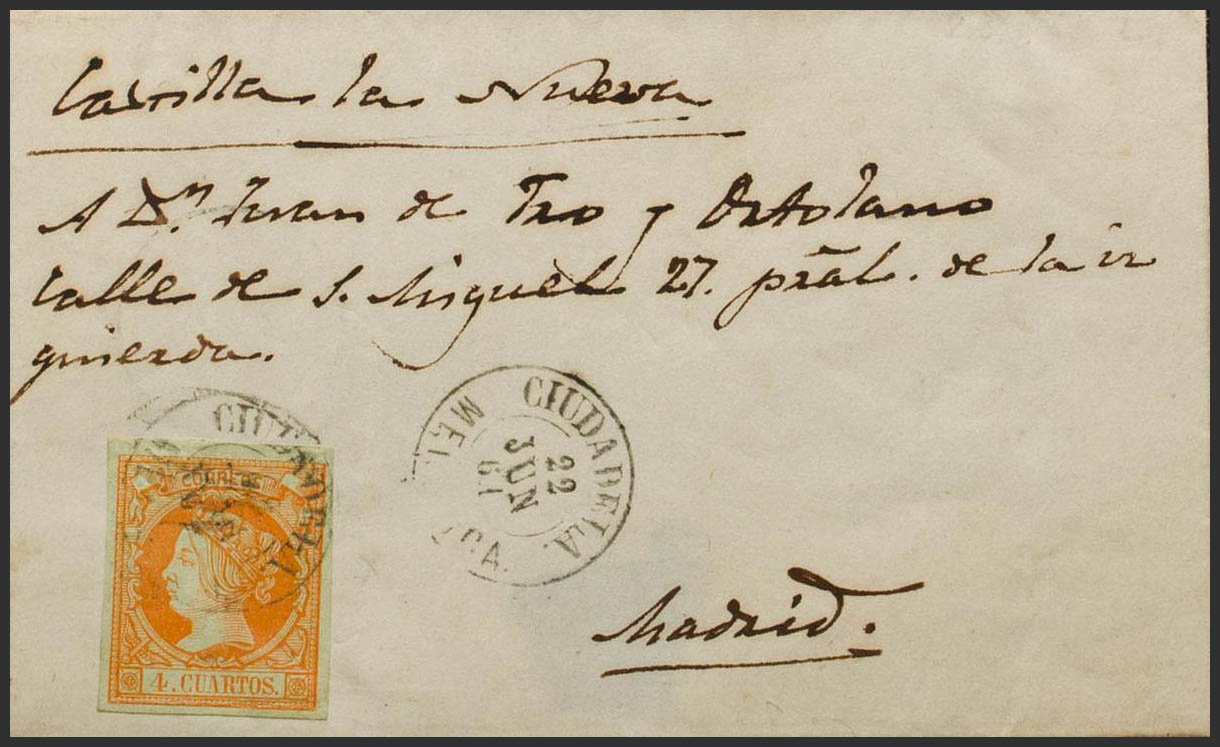 Castilla la Nueva
A Dn. Juan de Tro y Ortolano
Calle de S. Miguel 27. pral. de la iz
quierda.
CIUDADELA
22
JUN
61
CORREOS
4. CUARTOS.
Madrid.